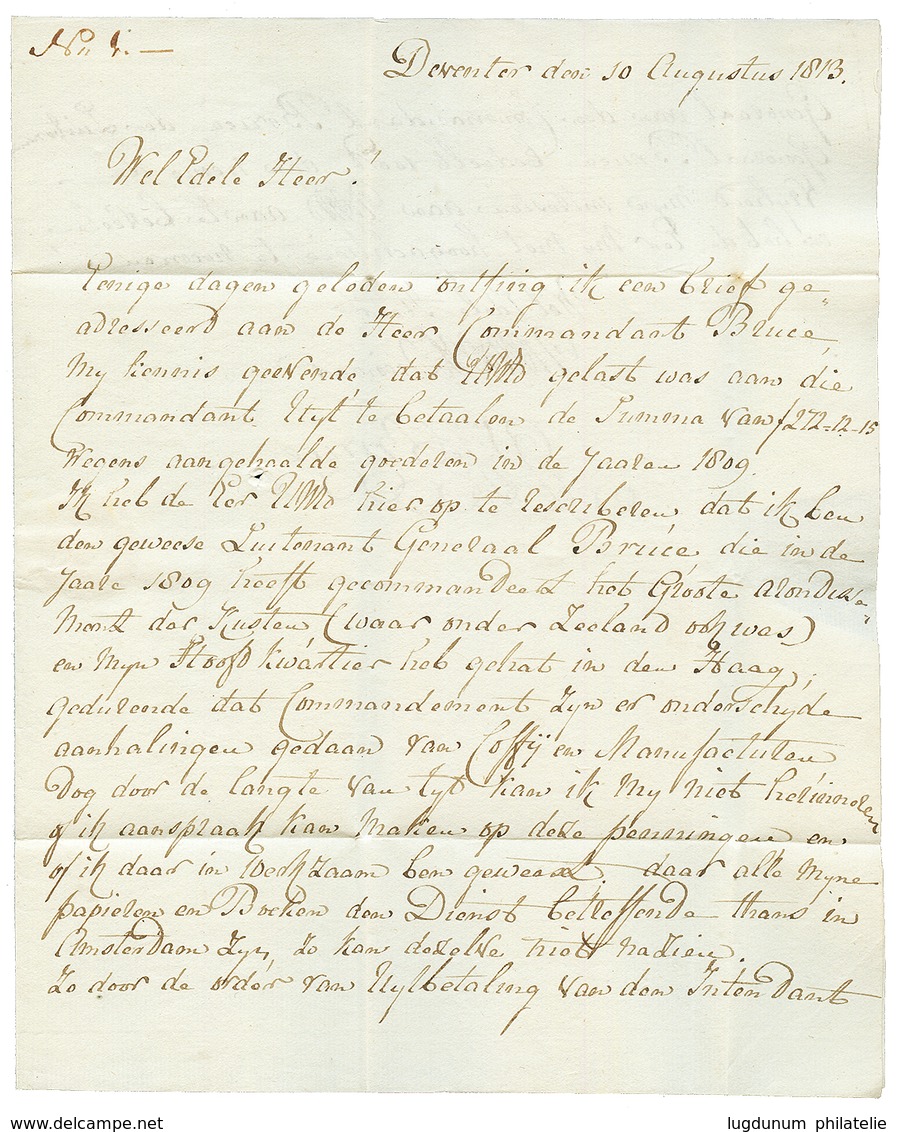 Deventer den 10 Augustus 1813.
Wel Edele Heer!
Eenige dagen geleden ontfing ik een brief ge„
adresseerd aan de Heer Commandant Bruce,
My kennis geevende, dat UWEd gelast was aan die
Commandant Uyt te betaalen de Summa van ƒ272=12-15
Wegens aangehaalde goederen in de Jaaren 1809.
Ik heb de Eer UWEd hier op te rescriberen dat ik ben
den geweese Luitenant Generaal Bruce die in de
Jaare 1809 heeft gecommandeert het Groote arondisse„
Ment der Kusten (waar onder Zeeland ook was)
en Myn Hoofd kwartier heb gehat in den Haag,
gedurende dat Commandement Zyn er onderschyde
aanhalingen gedaan van Coffij en Manufacturen
Dog door de langte van tyt kan ik My niet herinneren
of ik aanspraak kan Maken op deze penningen en
of ik daar in Werkzaam ben geweest, daar alle Myne
papieren en Boeken den Dienst betreffende thans in
Amsterdam Zyn, Zo kan dezelve niet nazien.
Zo door de order van Uytbetaling van den Intendant
www.delcampe.net
lugdunum philatelie